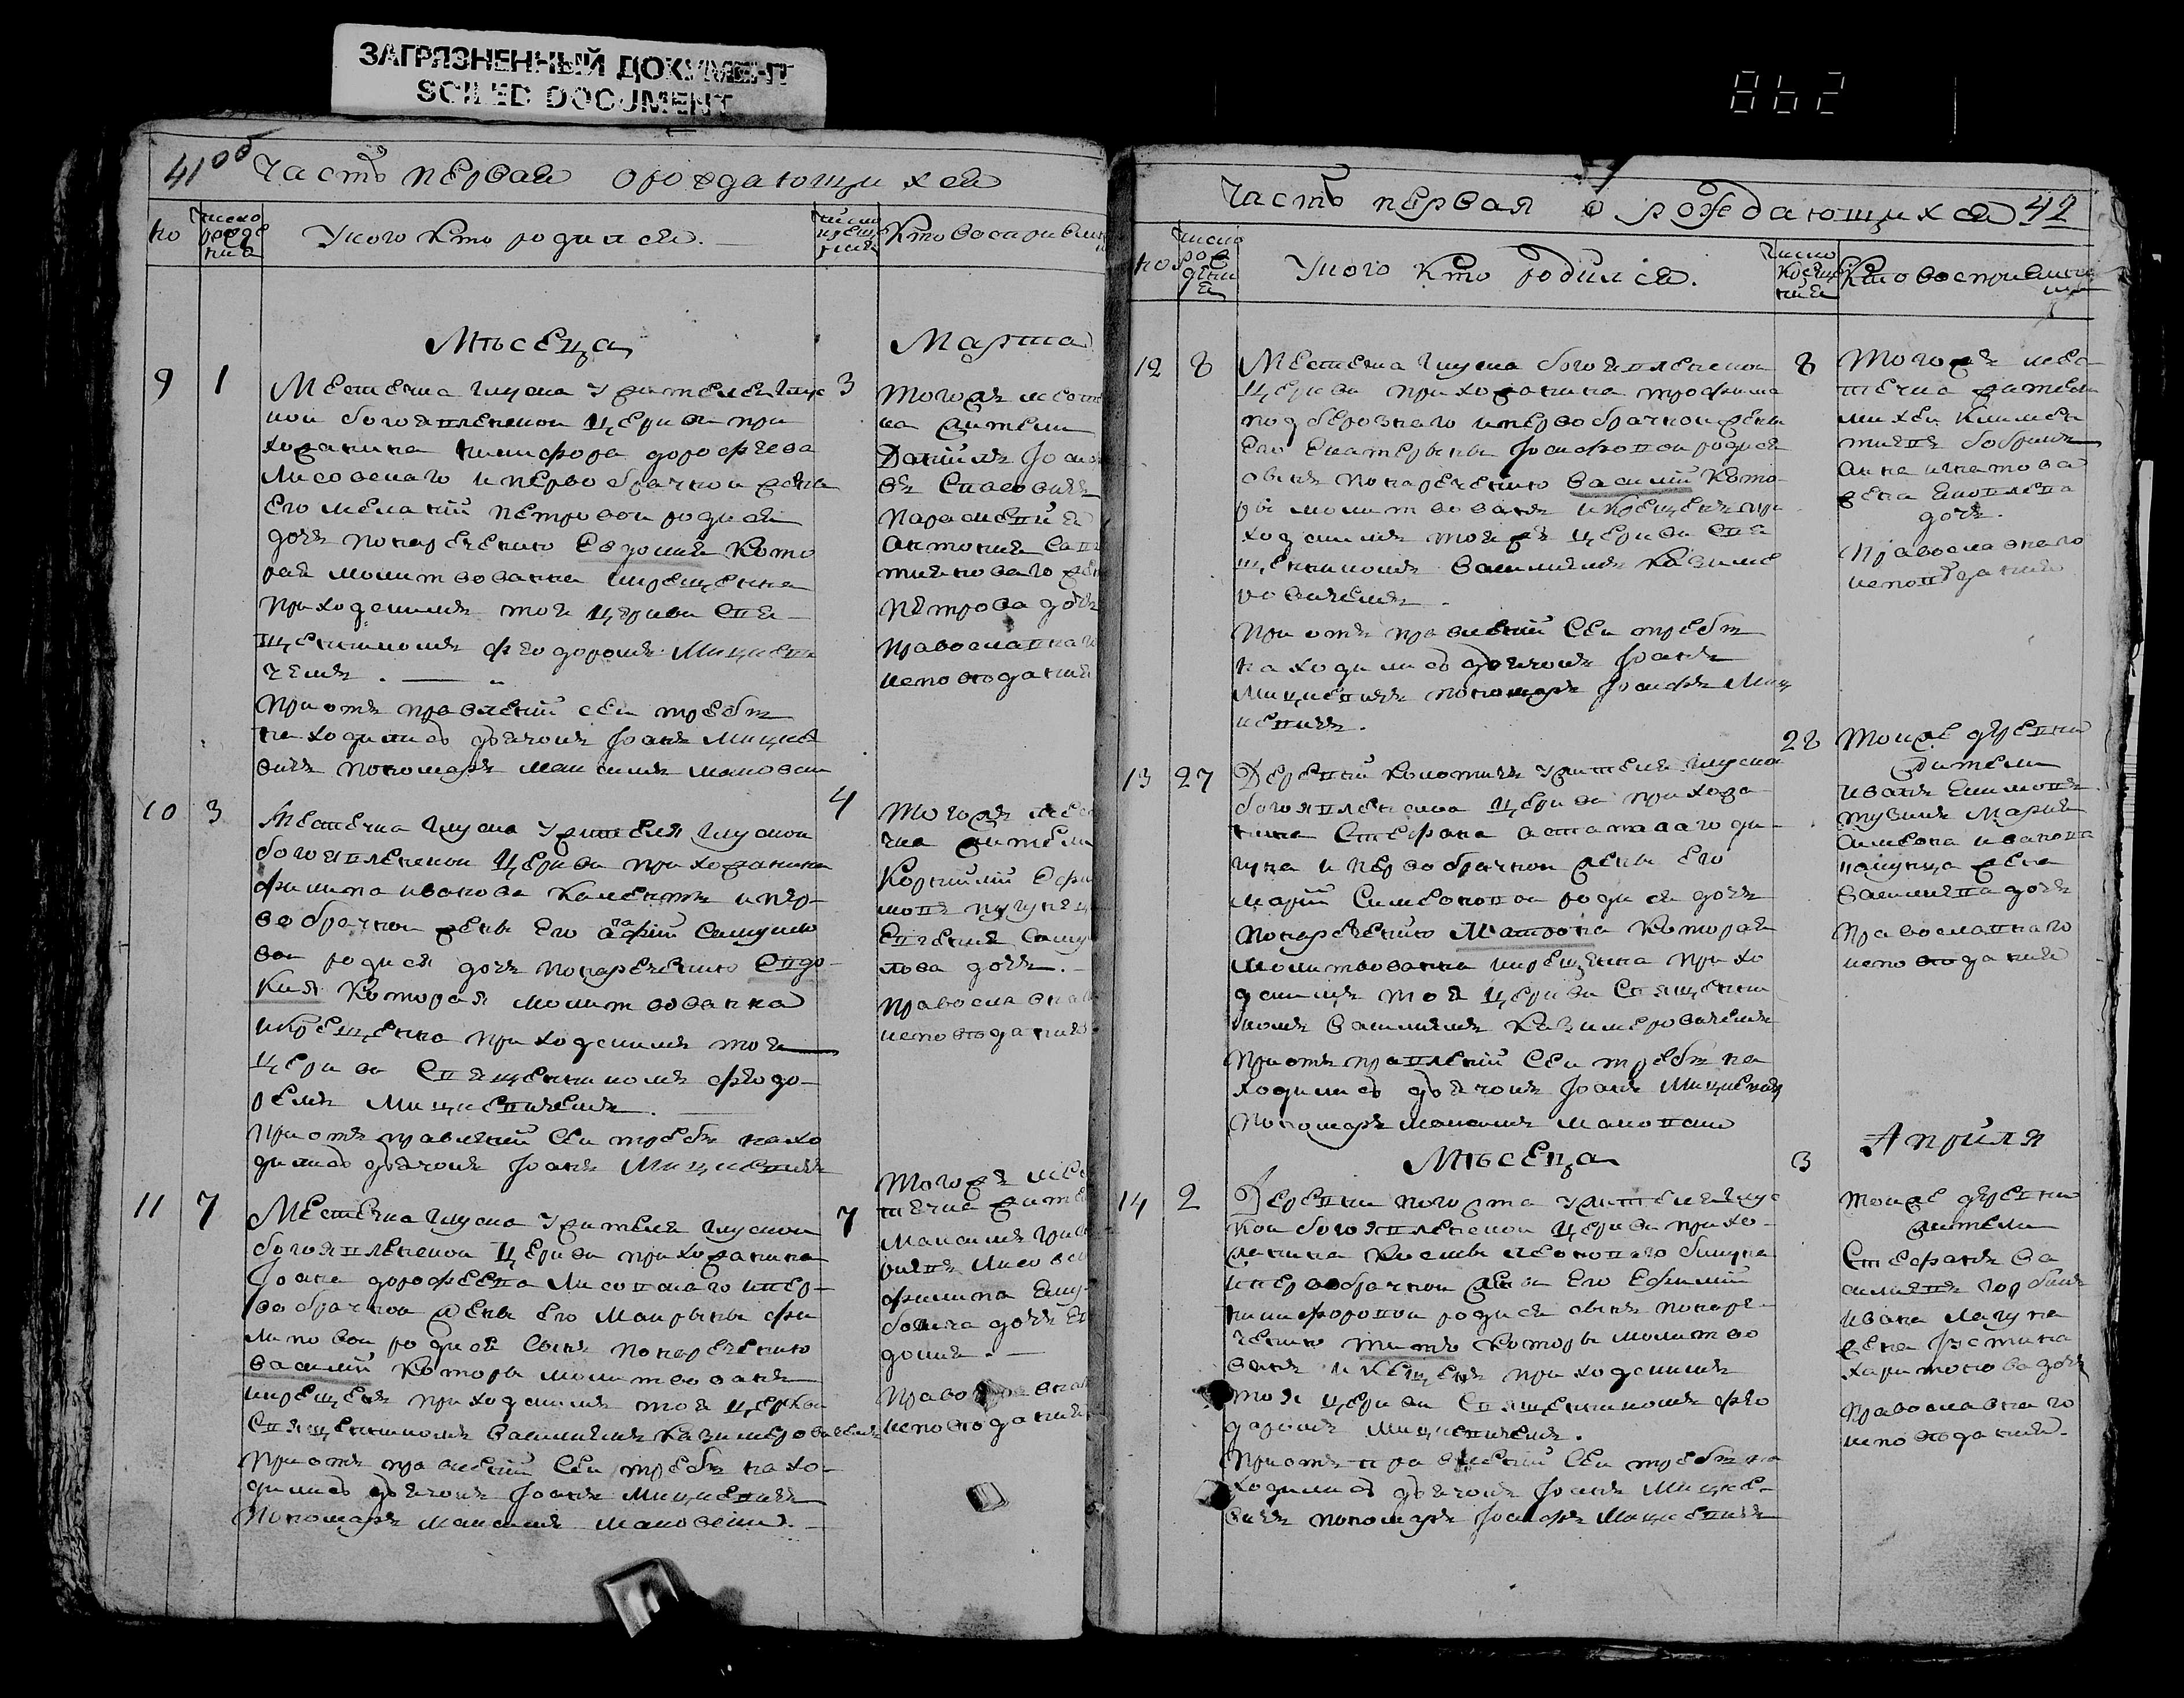 ЗАГРЯЗНЕННЫЙ ДОКУМЕНТ
SOILED DOCUMENT
862
41об
Часть первая о рождающихся
но
число рожде ния
У кого кто родился.
число креще ния
Кто восприем
Мѣсеца
Марта
9
1
Местечка Глуска Жителей Глус
кой богоявленской Церкви при
хожанина Никифора дорофеева
Лисовскаго и первобрачной жены
Его Меланіи петровой родися
дочь понаречению Евдокия Кото
рая молитвованна икрещенна
Приходскимъ тоя Церкви Свя
щенникомъ Феодоромъ Мицкеви
чемъ.
При отправленіи сей требы
находились дьячокъ Іоанъ Мицке
вичъ пономарь Максимъ Маковски
3
Тогожъ место
ка жители
Даніилъ
Параскевия
Антония
Петрова дочь
православнаго
исповѣданія
10
3
Местечка Глуска Жителя Глуской
богоявленской Церкви прихожанина
Филипа иванова и пер
вобрачной жены Его
вой родися дочь понаречению Евдо
кия Которая молитвованна
икрещенна приходскимъ тоя
Церкви Священникомъ Феодо
ромъ Мицкевичемъ.
При отправленіи Сей требы нахо
дились дьячокъ Іоанъ Мицкевичъ
4
Тогожъ мес
чка жители
Корнилій
дочь.
православна
исповѣдания
11
7
Местечка Глуска Жителя Глуской
богоявленской Церкви прихожанина
Іоана дорофеева Лисовскаго ипер
вобрачной жены Его Марьяны Фи
липовой родися Сынъ понаречению
Василій Которы молитвованъ
икрещенъ приходскимъ тоя церкви
Священникомъ Василиемъ Казимеровичемъ
При отправленіи Сей требы нахо
дились дьячокъ Іоанъ Мицкевичъ
Пономарь Максимъ Маковски.
7
Тогожъ мес
течка жите
Максимъ
Филипа
дочь
православна
исповѣдания
Часть первая о рождающихся
42
но
число рождения
У кого кто родился.
число крещения
Кто восприемни
12
8
Местечка Глуска богоявленской
Церкви прихожанина трофима
подберезнаго ипервобрачной жены
Его Екатерыны Іосифовой родися
сынъ понаречению Василий Кото
ры молитвованъ икрещенъ при
ходскимъ тояжъ церкви Свя
щенникомъ Василиемъ Казиме
ровичемъ.
При отправленіи Сей требы
находились дьячокъ Іоанъ
Мицкевичъ пономарь Іосифъ Миц
кевичъ.
8
Тогожъ мес
течка жители
Михей
Анна игнатова
жена
дочь.
Православнаго
исповѣдания
13
27
Деревни Жителя Глуска
богоявленска Церкви прихожа
нина Стефана
и первобрачной жены Его
Маріи Симеоновой родися дочь
понаречению Матрона Которая
молитвованна икрещенна прихо
дскимъ тоя церкви Священни
комъ Василиемъ Казимеровичемъ
При отправленіи Сей требы на
ходились дьячокъ Іоанъ Мицкевичъ
Пономарь Максимъ Маковски
28
Тоижѣ деревни
жители
иванъ
Мария
Симеона иванова
жена
Василиева дочь
православнаго
исповѣдания
Мѣсеца
Априля
14
2
Деревни погоста Жителя Глус
кой богоявленской Церкви прихо
жанина
ипервобрачной жены Его Ефимии
Никифоровой родися сынъ понаре
чению Титъ Которы молитво
ванъ и крещенъ приходскимъ
тоя церкви Священникомъ Фео
доромъ Мицкевичемъ.
При отправленіи Сей требы на
ходились дьячокъ Іоанъ Мицке
вичъ пономарь Іосифъ Мицкевичъ
3
Тоижѣ деревни
жители
Стефанъ Ва
силиевъ
ивана
жена Іустина
харитонова дочь
православнаго
исповѣдания.